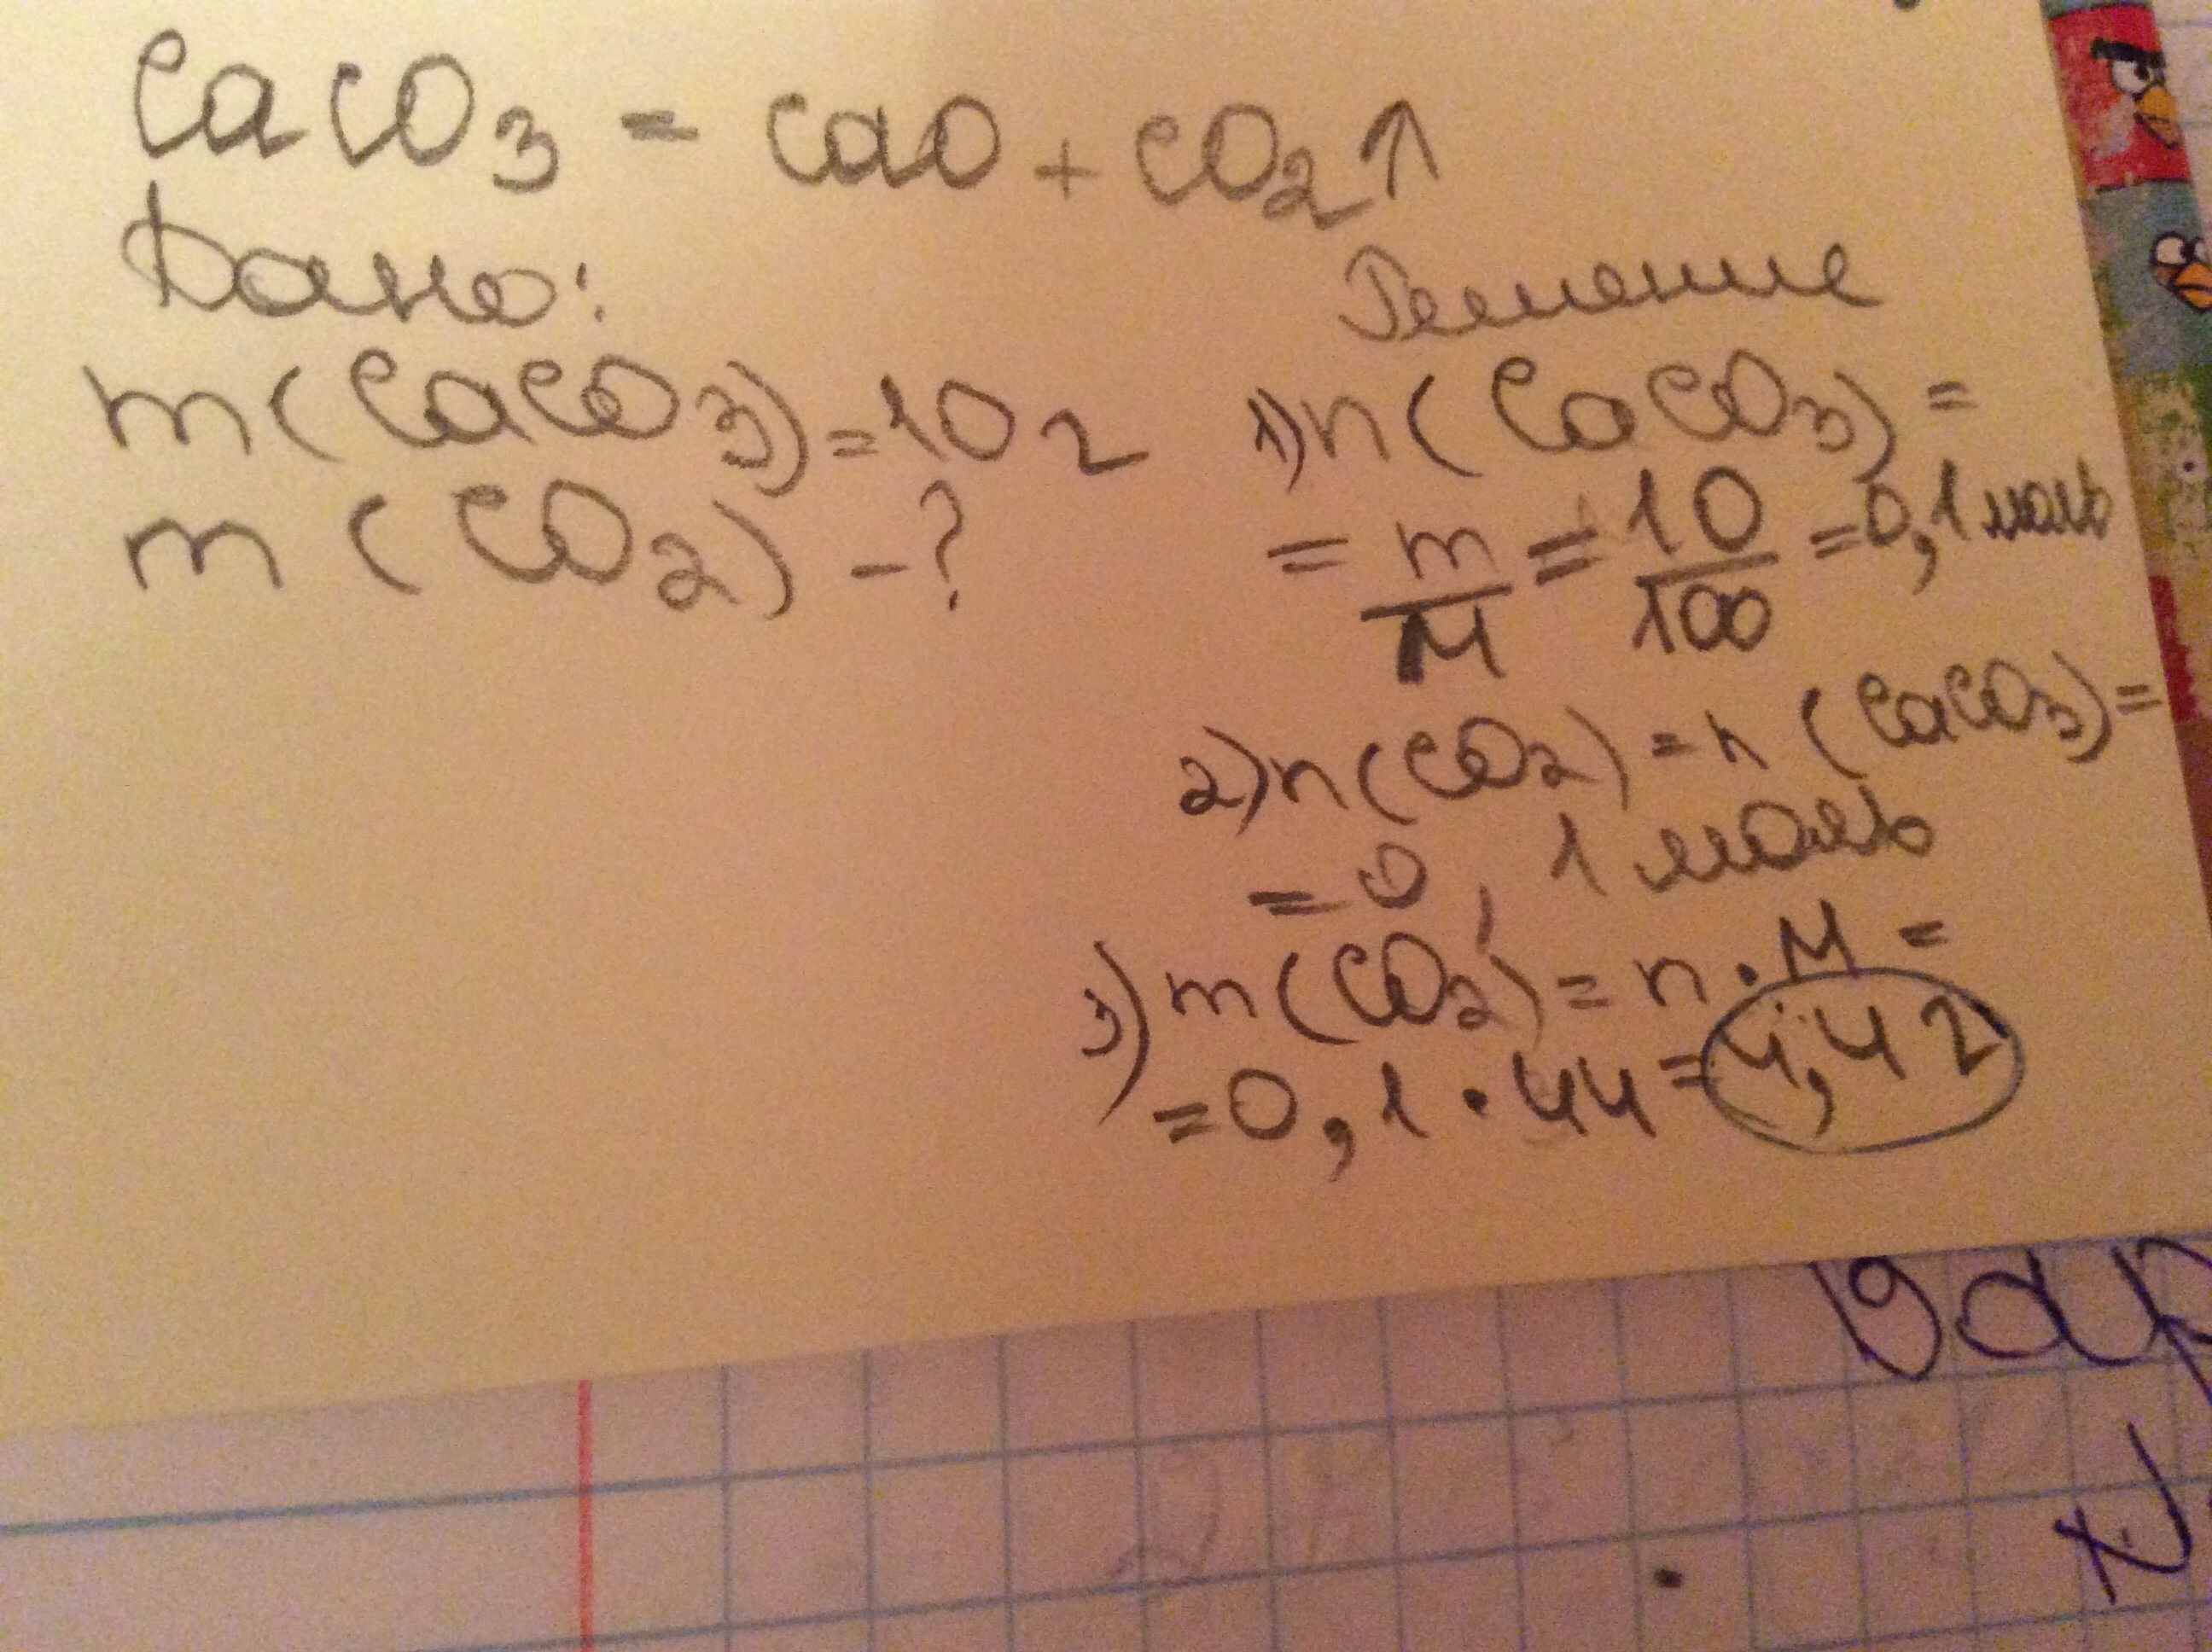 CaCO₃ = CaO + CO₂↑
Дано:
m(CaCO₃)=10г
m(CO₂) -?
Решение
1)n(CaCO₃) =
= m/M = 10/100 =0,1моль
2)n(CO₂) = n(CaCO₃)=
= 0,1 моль
3)m(CO₂)= n·M =
=0,1·44=4,4г